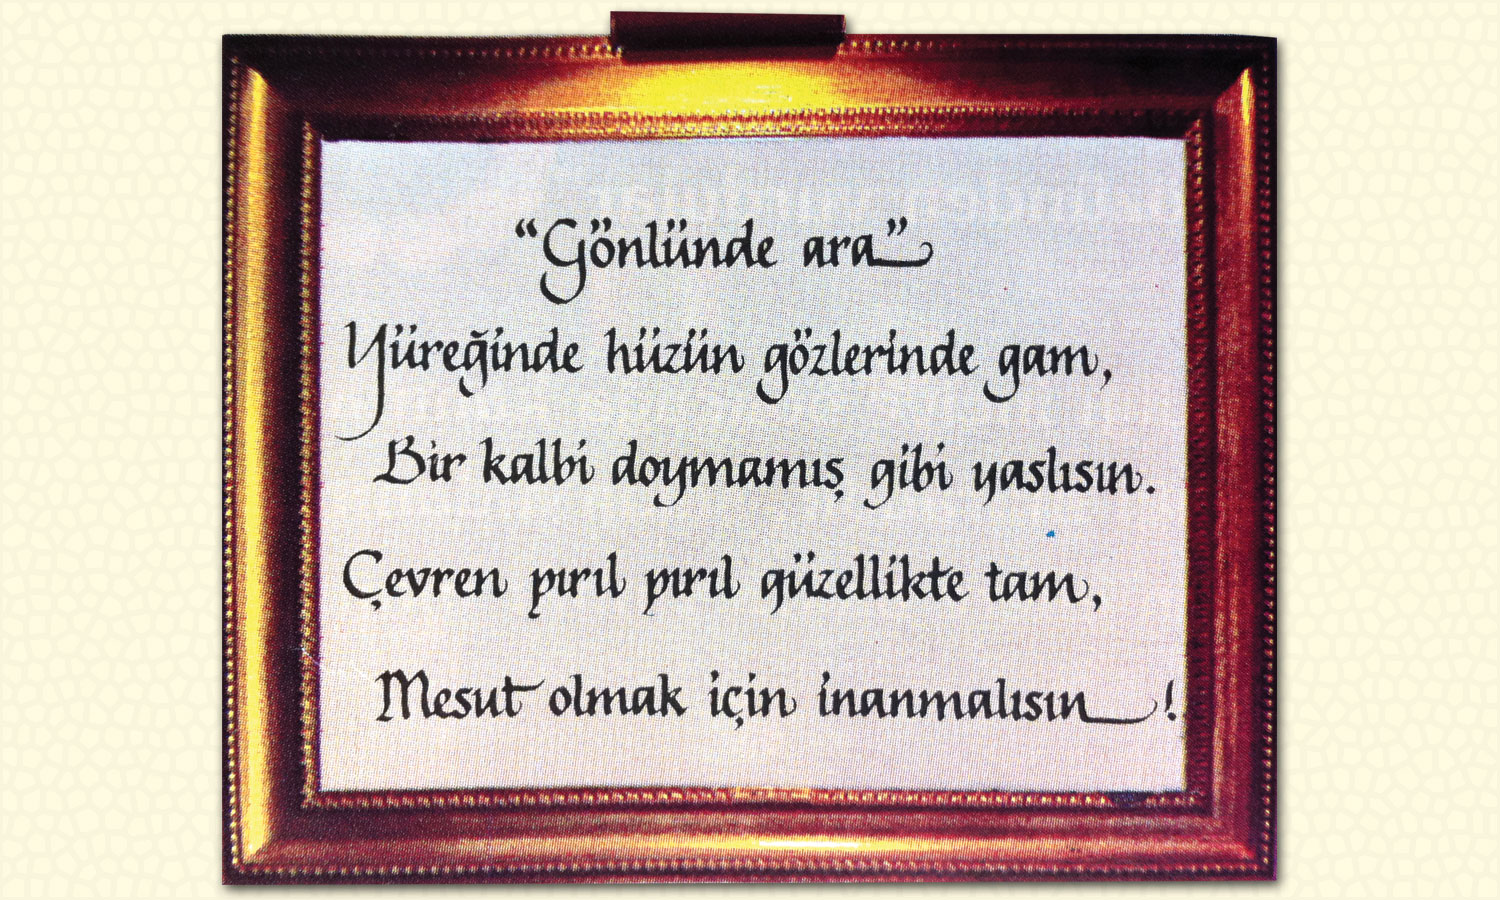 “Gönlünde ara”
Yüreğinde hüzün gözlerinde gam,
Bir kalbi doymamış gibi yaslısın.
Çevren pırıl pırıl güzellikte tam,
Mesut olmak için inanmalısın!